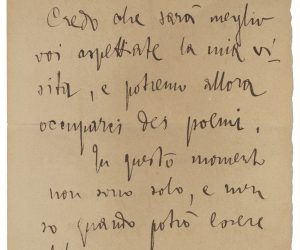 Credo che sarà meglio
voi aspettate la mia vi-
sita, e potremo allora
occuparci dei poemi.
In questo momento
non sono solo, e non
so quando potrò essere